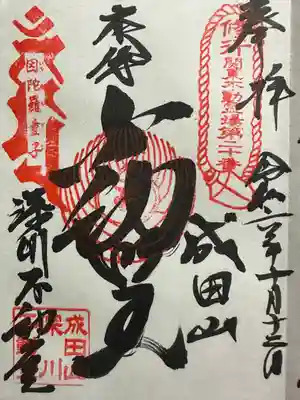 奉拝
令和六年十月十三日
関東不動霊場第二十番
本尊
不動明王
成田山
深川不動堂
因陀羅童子
成田山
深川